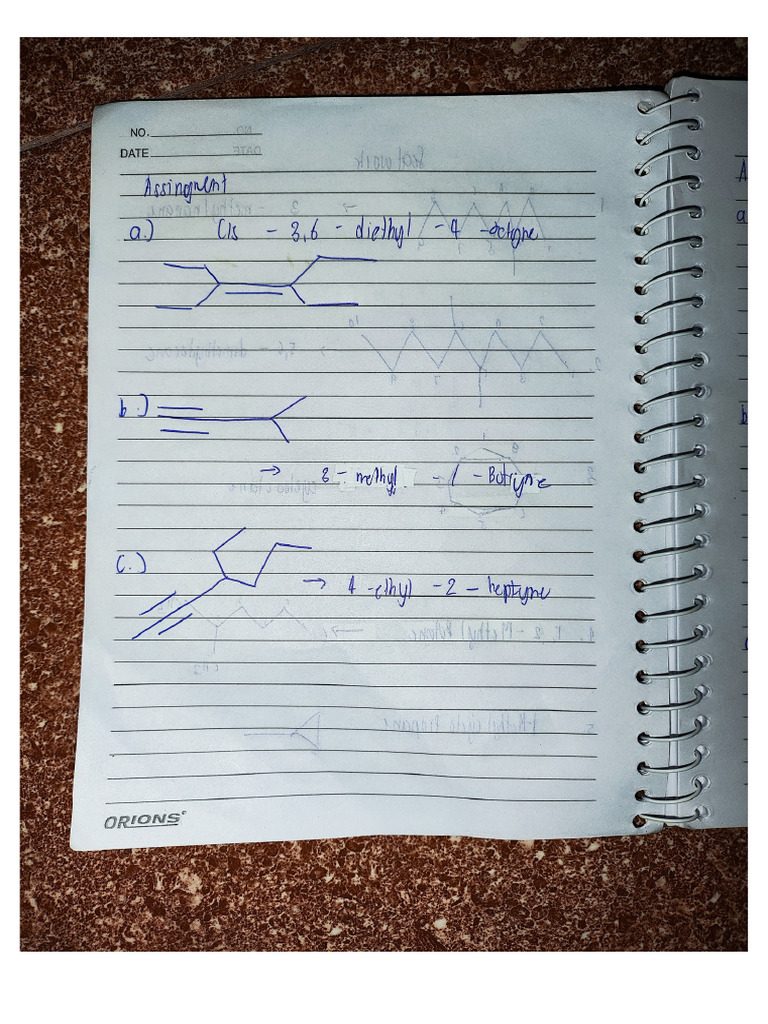 NO.
DATE
Assingment
a.) Cis - 3,6 - diethyl - 4 - octyne
b.)
→ 3 - methyl - 1 - Butyne
C.)
→ 4 - ethyl - 2 - heptyne
ORIONS